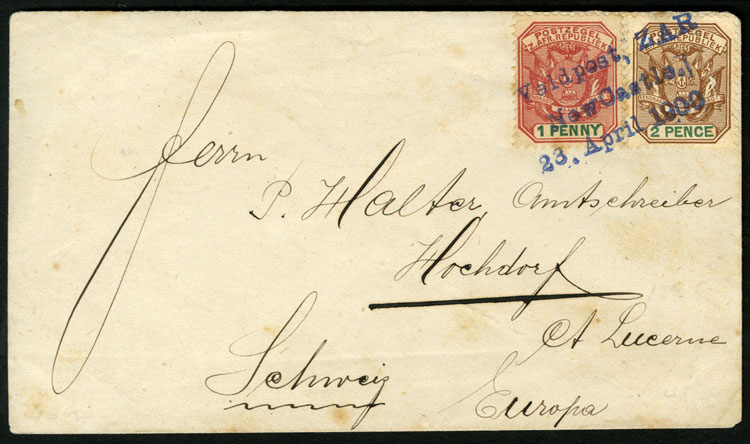 POSTZEGEL
Z.AFR.REPUBLIEK
1 PENNY
POSTZEGEL
Z.AFR.REPUBLIEK
2 PENCE
Veldpost, ZAR
NewCastle.
23. April 1900
Herrn
P. Walter, Amtschreiber
Hochdorf
Ct Lucerne
Schweiz
Europa